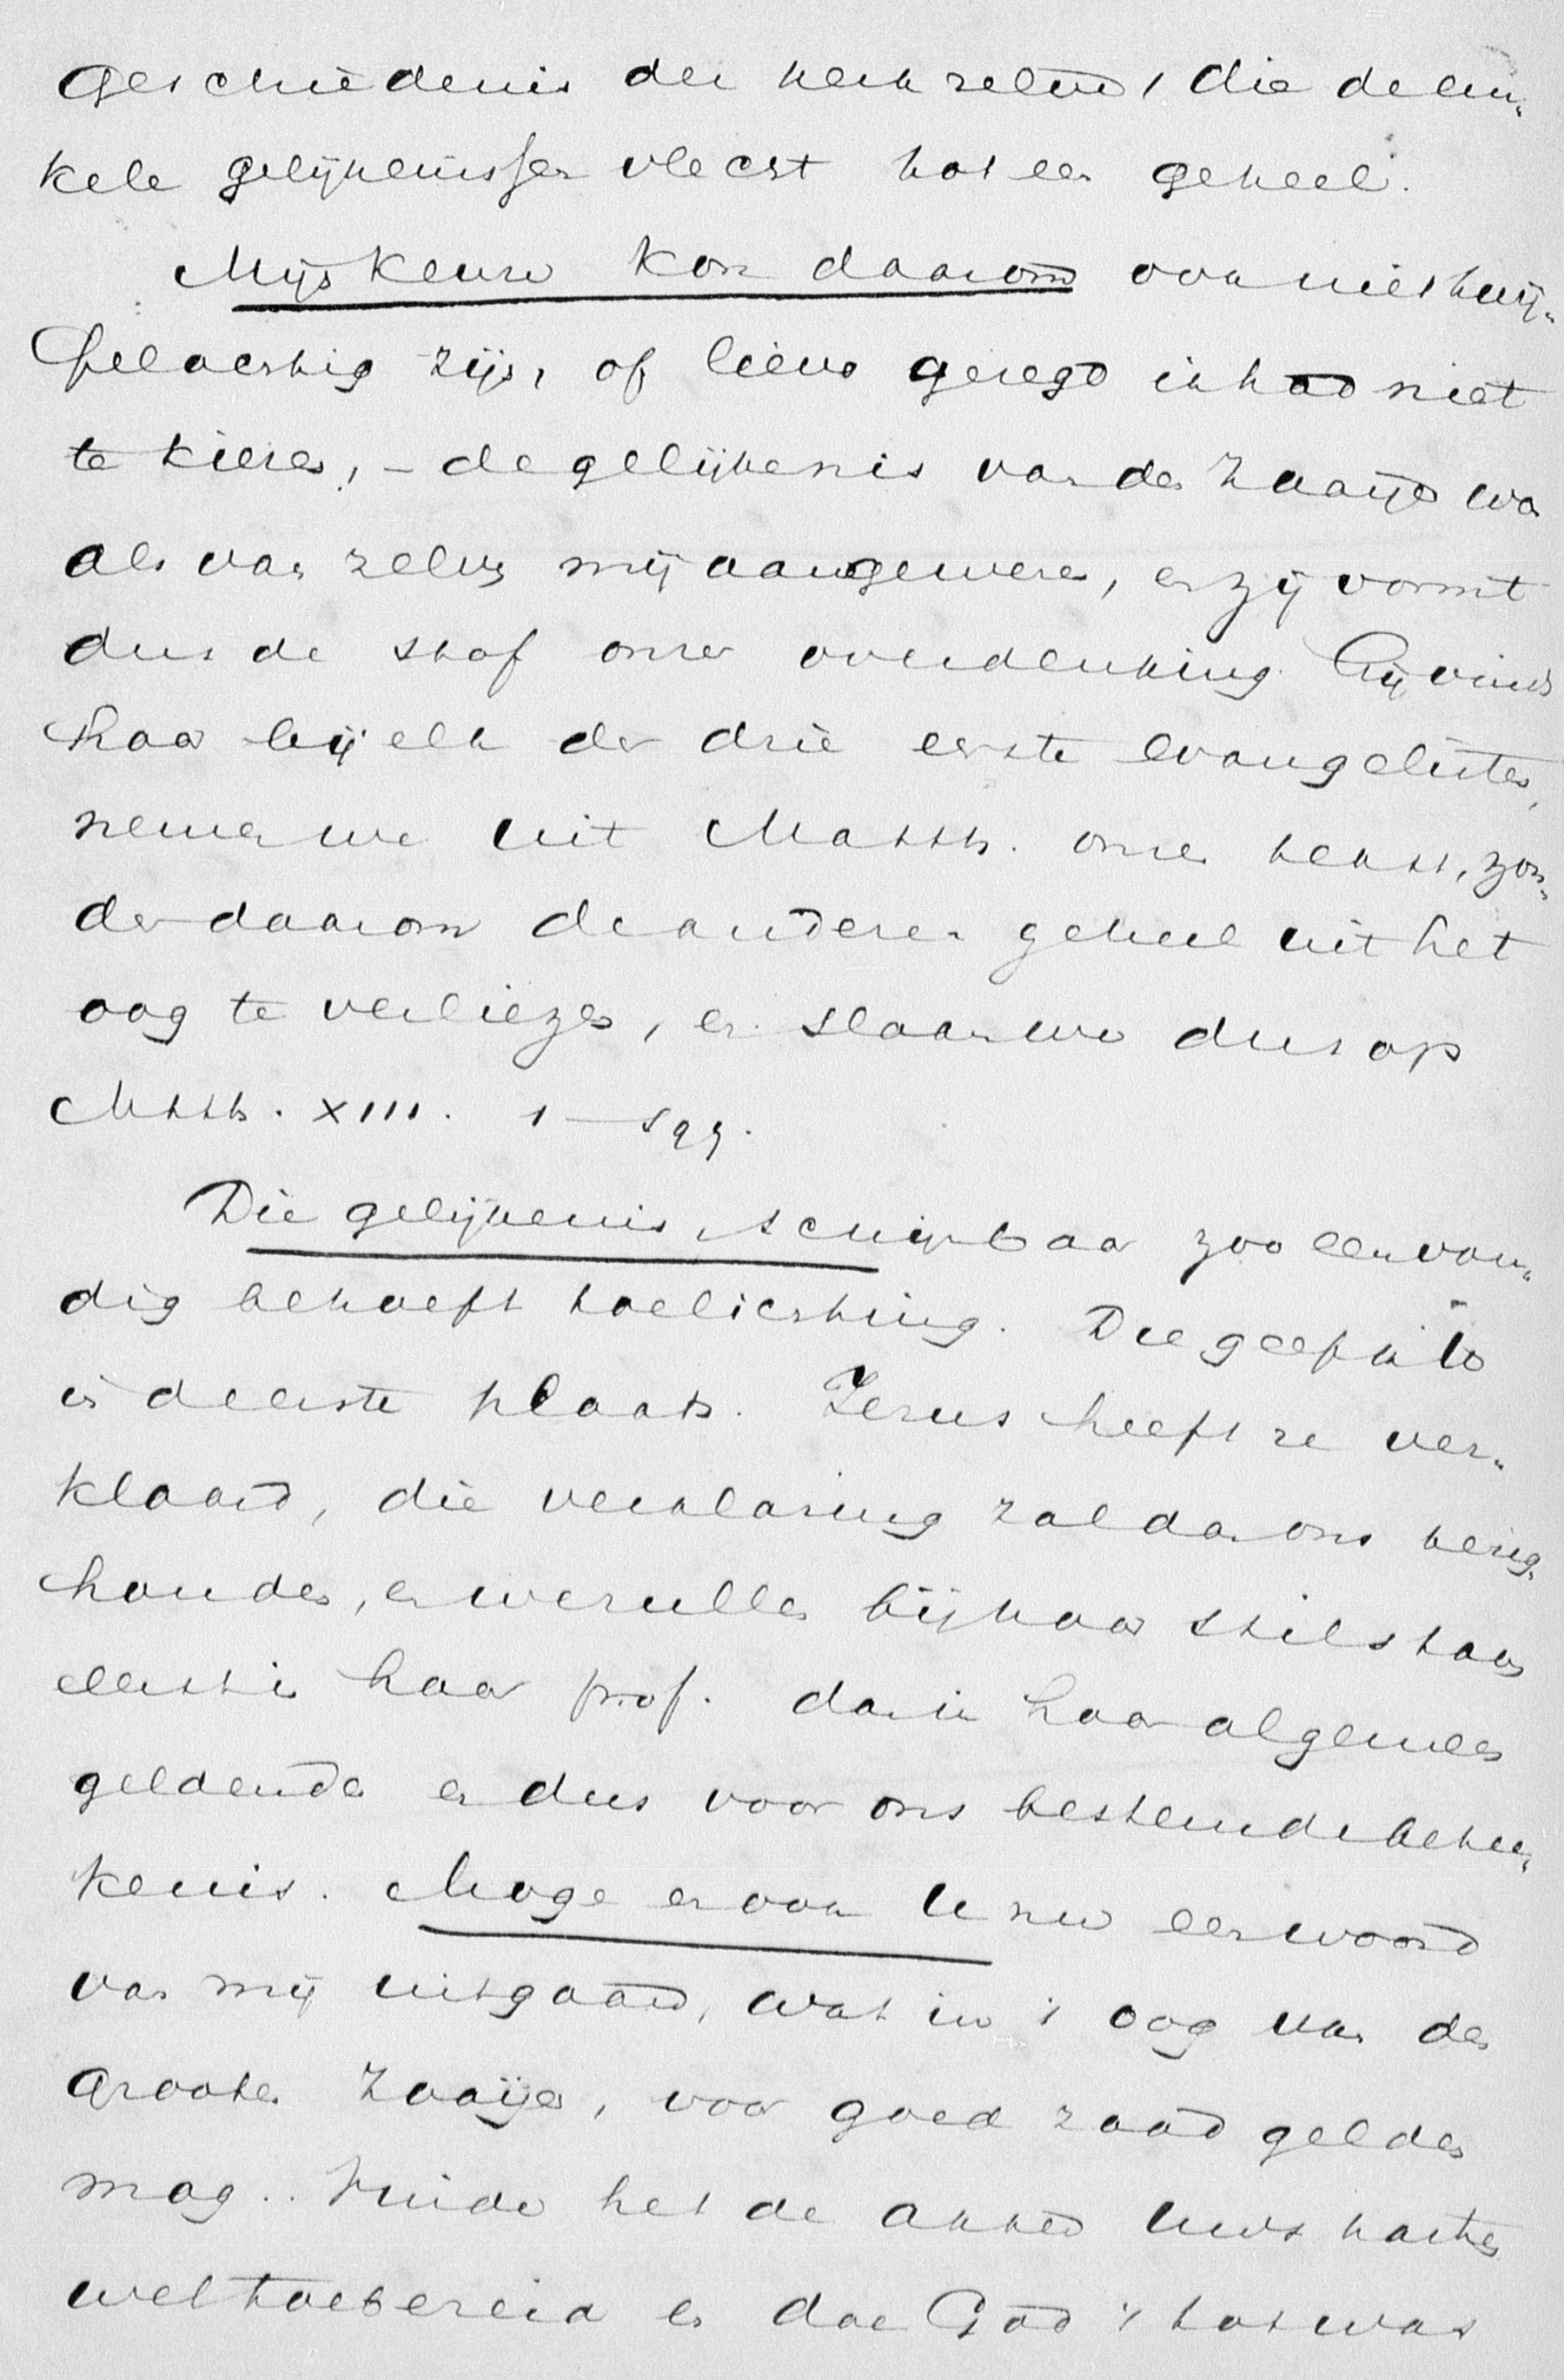 geschiedenis der kerk zelve, die de en-
kele gelijkenissen vlecht tot een geheel.
Mijn keuze kon daarom ook niet twij-
felachtig zijn, of liever gezegd ik had niet
te kiezen, – de gelijkenis van den Zaaijer was
als van zelve mij aangewezen, en zij vormt
dus de stof onzer overdenking. Gij vindt
haar bij elk der drie eerste evangelisten,
nemen we uit Matth. onzen tekst, zon-
der daarom de anderen geheel uit het
oog te verliezen, en slaan we dus op
Mtth. XIII. 1 – sqq.
Die gelijkenis, schijnbaar zoo eenvou-
dig behoeft toelichting. Die geef ik
in de eerste plaats. Jezus heeft ze ver-
klaard, die verklaring zal dan ons bezig-
houden, en we zullen bij haar stilstaan
eerst in haar prof. dan in haar algemeen
geldende en dus voor ons bestemde betee-
kenis. Moge er ook U nu een woord
van mij uitgaan, wat in 't oog van den
grooten Zaaijer, voor goed zaad gelden
mag. Vinde het de akker uws harten
wel toebereid en doe God 't tot was